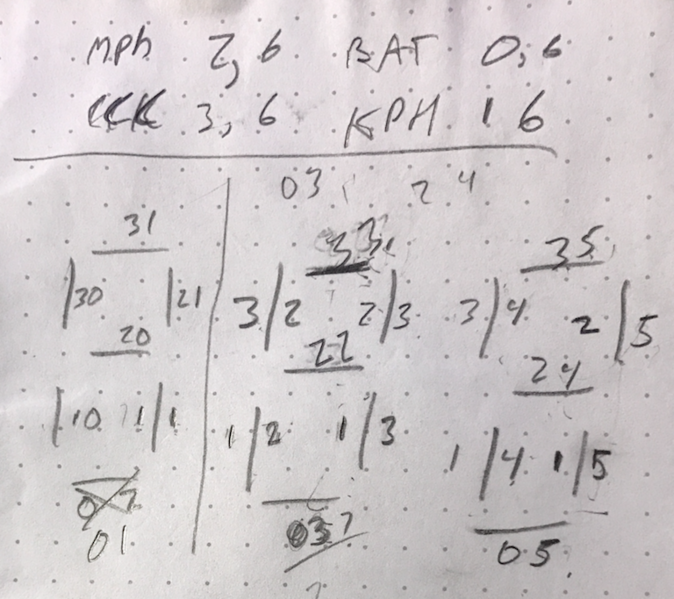 mph 2,6 BAT 0,6
3,6 KPH 16
03 24
31 33 35
30 21 3 2 2 3 3 4 2 5
20 22 24
10 1 1 1 2 1 3 1 4 1 5
01 03 05